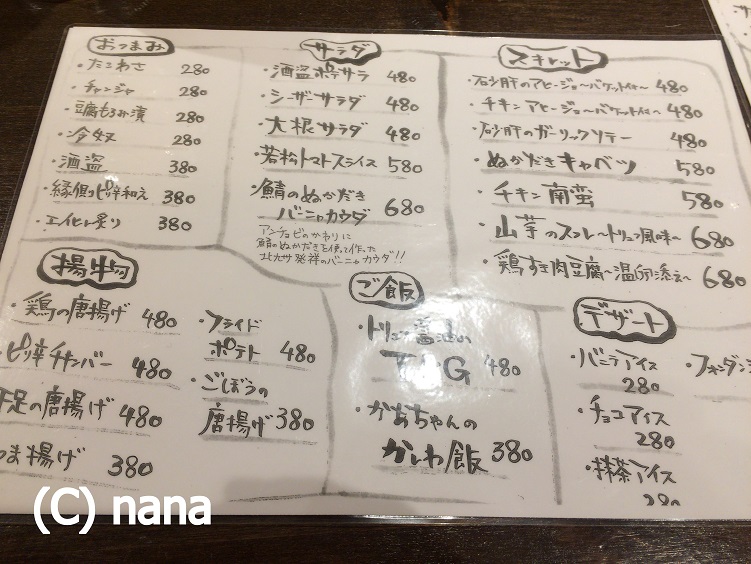 おつまみ
・たこわさ 280
・チャンジャ 280
・豆腐もろみ漬 280
・冷奴 280
・酒盗 380
・縁側ピリ辛和え 380
・エイヒレ炙り 380
サラダ
・酒盗ポテサラ 480
・シーザーサラダ 480
・大根サラダ 480
・若松トマトスライス 580
・鯖のぬかだき
バーニャカウダ 680
アンチョビのかわりに
鯖のぬかだきを使って作った
北九州発祥のバーニャカウダ!!
スキレット
・砂肝のアヒージョ〜バケット付〜 480
・チキンアヒージョ〜バケット付〜 480
・砂肝のガーリックソテー 480
・ぬかだきキャベツ 580
・チキン南蛮 580
・山芋のスフレ〜トリュフ風味〜 680
・鶏すき肉豆腐〜温卵添え〜 680
揚げ物
・鶏の唐揚げ 480
・ピリ辛チキンバー 480
足の唐揚げ 480
揚げ 380
・フライド
ポテト 480
・ごぼうの
唐揚げ 380
ご飯
・トリュフ醤油の
TKG 480
・かあちゃんの
かしわ飯 380
デザート
・バニラアイス
280
・チョコアイス
280
・抹茶アイス
280
・フォンダン
(C) nana